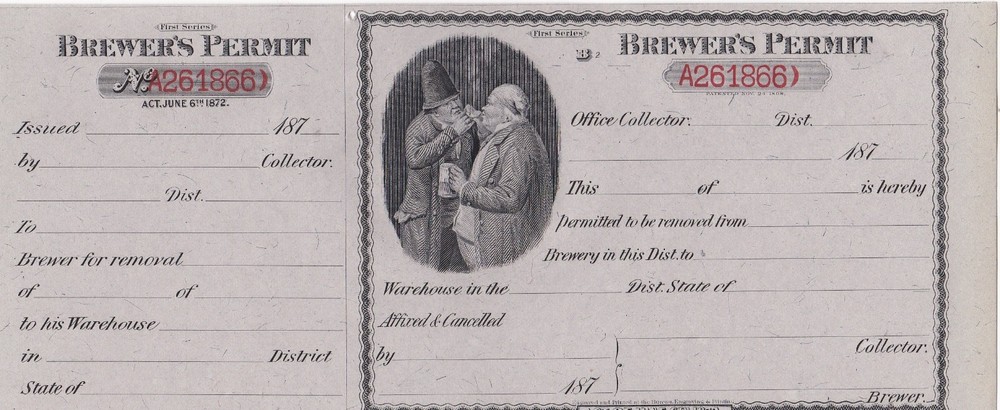 First Series
BREWER'S PERMIT
No A261866)
ACT. JUNE 6TH 1872.
Issued 187
by Collector.
Dist.
To
Brewer for removal
of of
to his Warehouse
in District
State of
First Series
B 2
BREWER'S PERMIT
A261866)
Office Collector. Dist.
187
This of is hereby
permitted to be removed from
Brewery in this Dist. to
Warehouse in the Dist. State of
Affixed & Cancelled
by Collector.
187 Brewer.
Engraved and Printed at the Bureau, Engraving & Printing